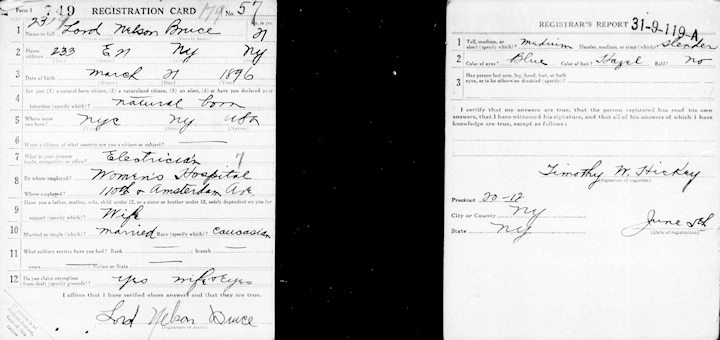 749 REGISTRATION CARD 179 No. 57
23
1 Name in full Lord Nelson Bruce 21
2 Home address 233 E n Ny Ny
3 Date of birth March 21 1896
4 Are you (1) a natural-born citizen, (2) a naturalized citizen, (3) an alien, (4) or have you declared your
intention (specify which)? natural born
5 Where were you born? NYC NY USA
6 If not a citizen, of what country are you a citizen or subject?
7 What is your present trade, occupation, or office? Electrician 7
8 By whom employed? Women's Hospital
Where employed? 110th & Amsterdam Ave.
9 Have you a father, mother, wife, child under 12, or a sister or brother under 12, solely dependent on you for
support (specify which)? Wife
10 Married or single (which)? married Race (specify which)? Caucasian
11 What military service have you had? Rank branch
years Nation or State
12 Do you claim exemption from draft (specify grounds)? yes wife & eyes
I affirm that I have verified above answers and that they are true.
Lord Nelson Bruce
REGISTRAR'S REPORT 31-9-119-A
1 Tall, medium, or short (specify which)? medium Slender, medium, or stout (which)? Slender
2 Color of eyes? Blue Color of hair? Hazel Bald? no
3 Has person lost arm, leg, hand, foot, or both eyes, or is he otherwise disabled (specify)?
I certify that my answers are true, that the person registered has read his own
answers, that I have witnessed his signature, and that all of his answers of which I have
knowledge are true, except as follows:
Timothy W. Hickey
(Signature of registrar)
Precinct 20-12
City or County NY
State NY
June 5th
(Date of registration)